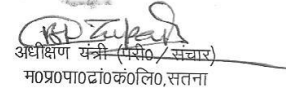 अधीक्षण यंत्री (परी० / संचार)
म०प्र०पा०ट्रां०कं०लि०,सतना